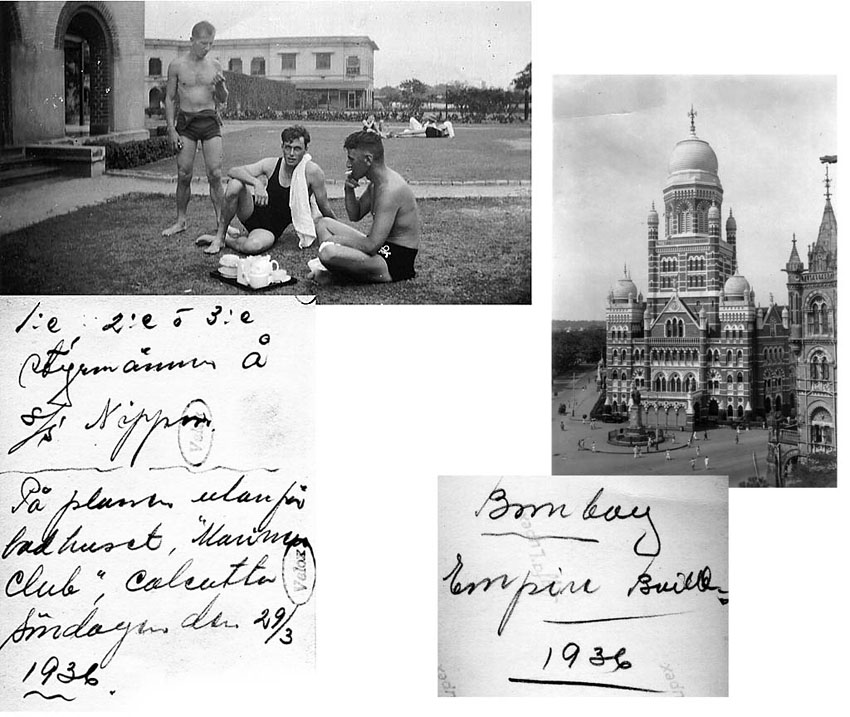 1:e 2:e o 3:e
Styrmännen å
s/s Nippon.
Velox
På planen utanför
badhuset, "Marine
Club", Calcutta
Velox
Söndagen den 29/3
1936.
Bombay
Empire Buildn
1936
Lupex
Lupex